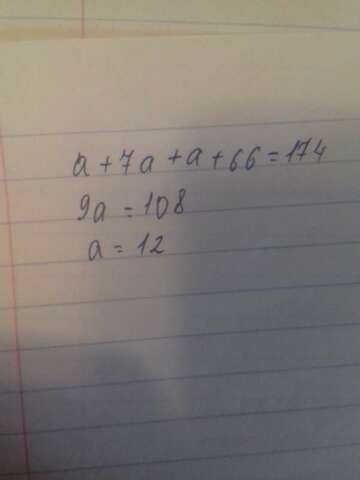 a + 7a + a + 66 = 174
9a = 108
a = 12